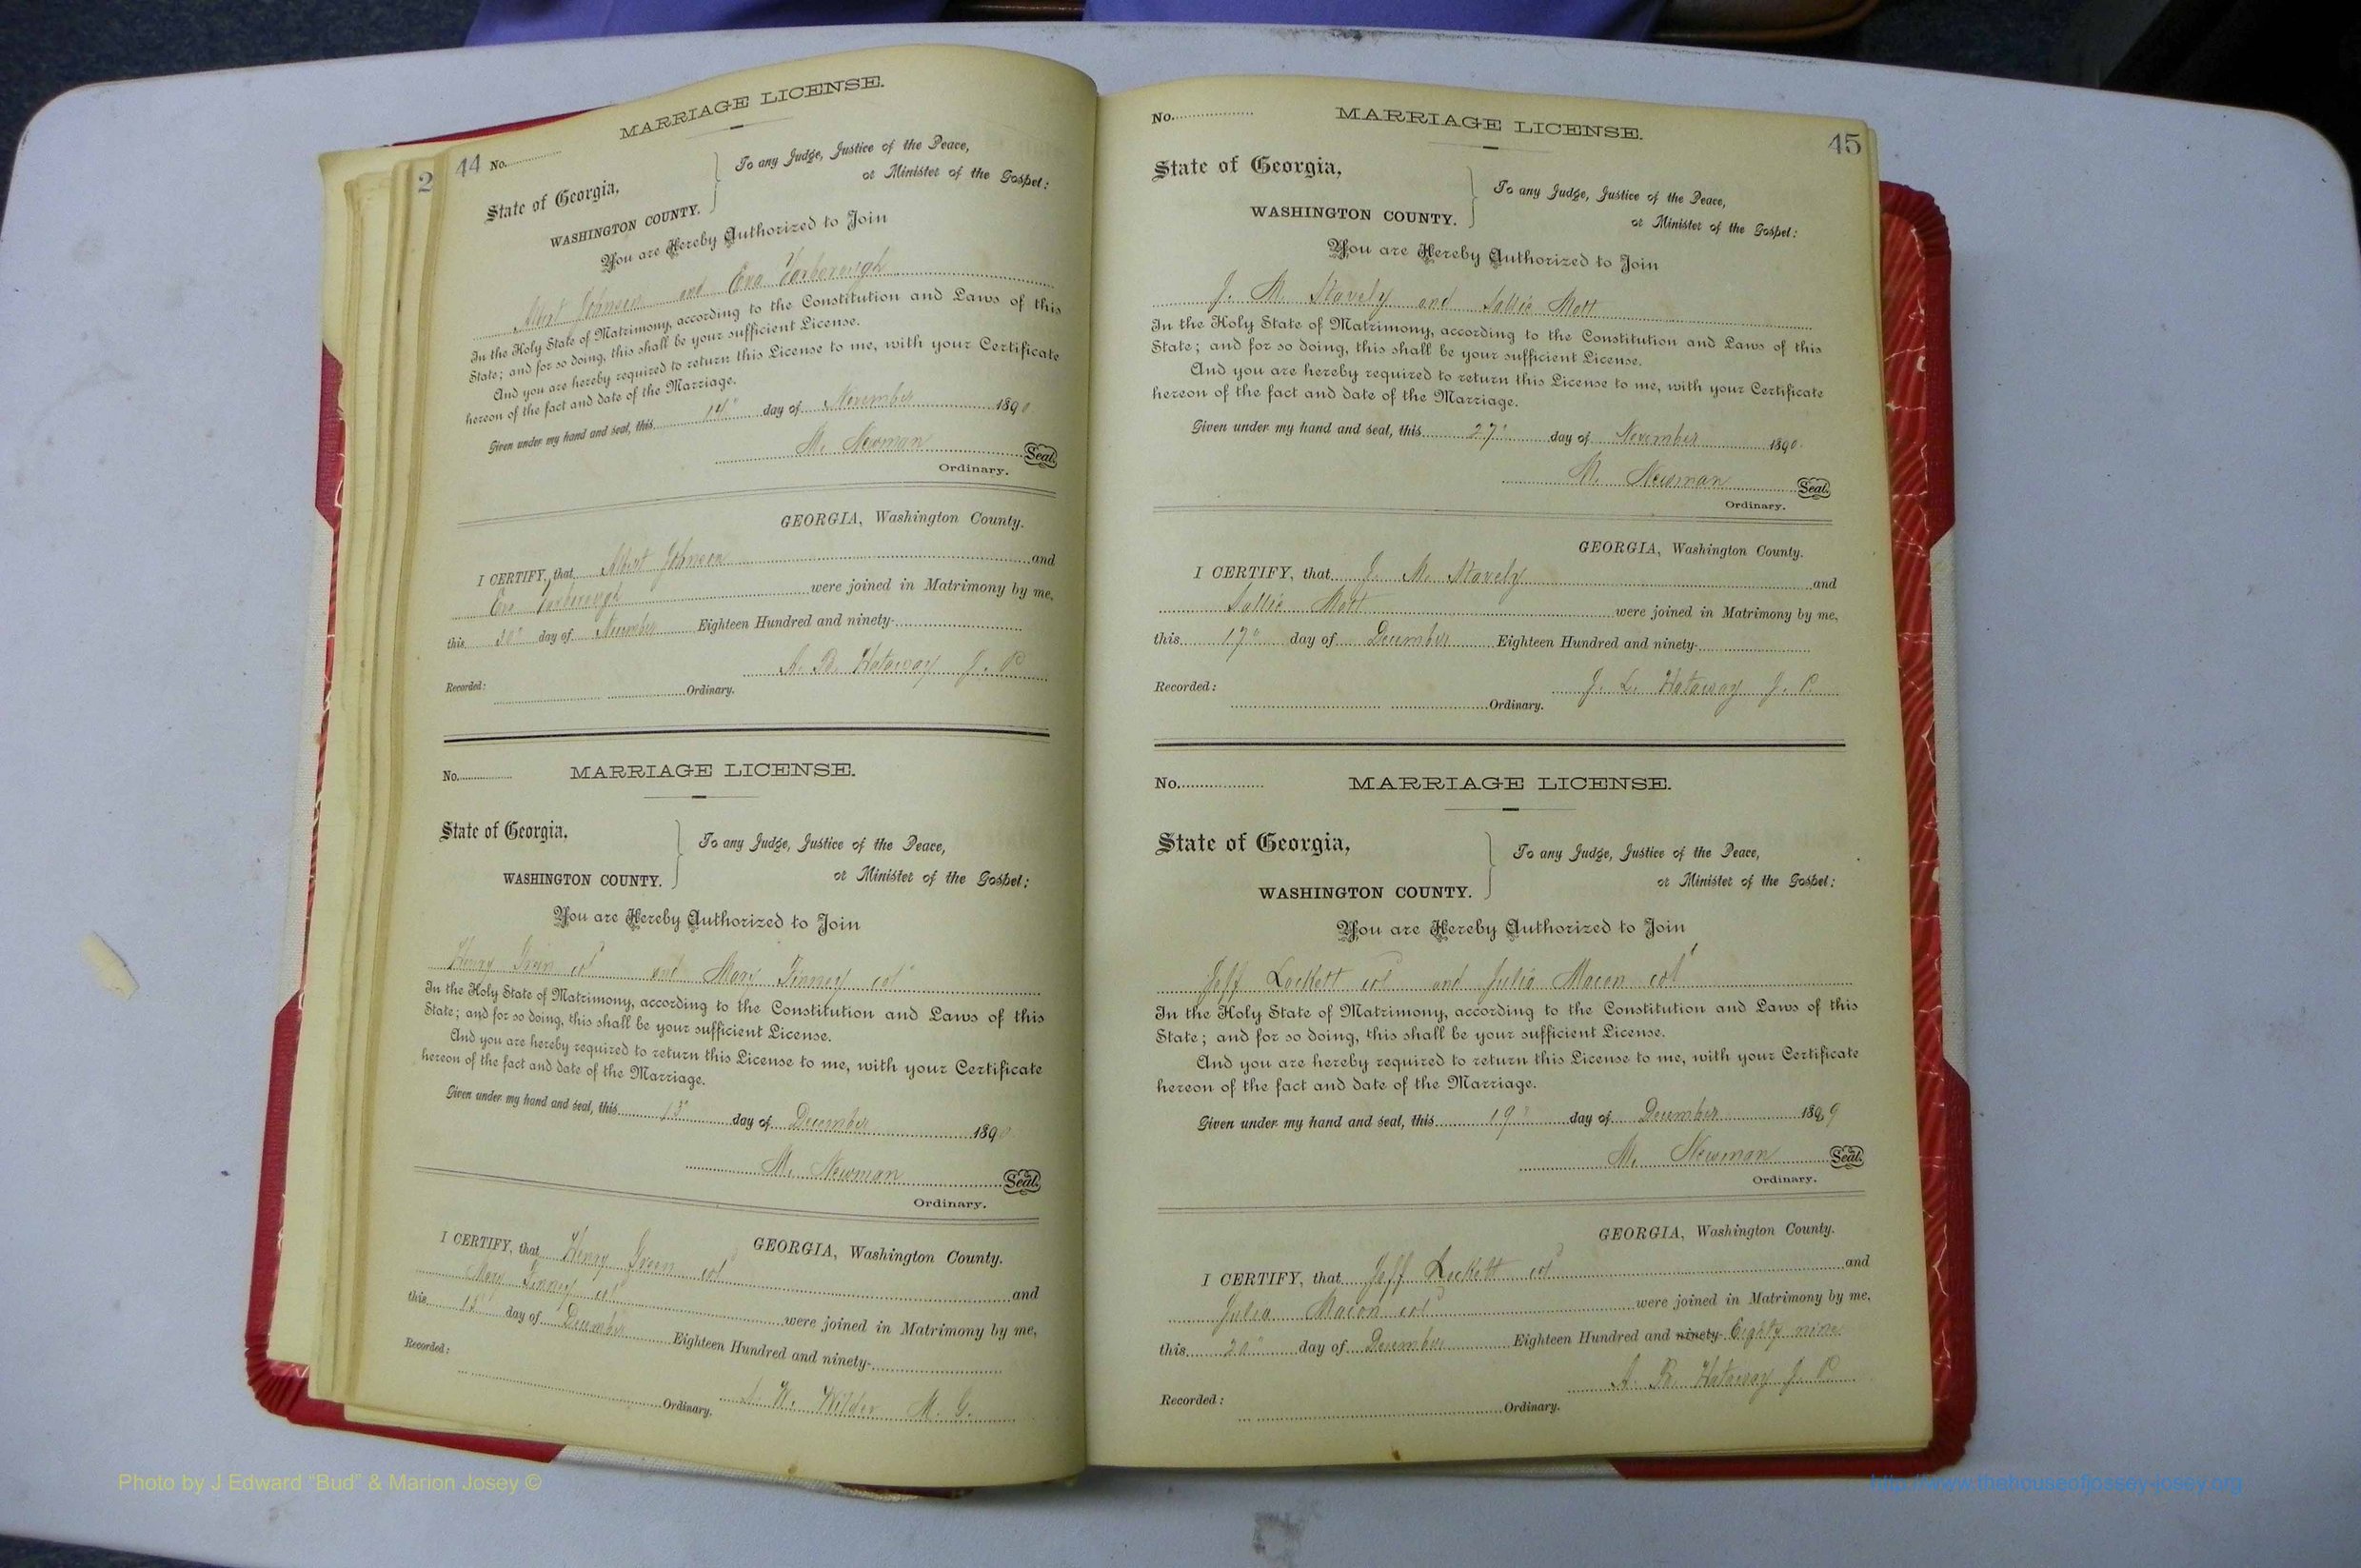 2
44 No.
MARRIAGE LICENSE.
State of Georgia,
WASHINGTON COUNTY.
To any Judge, Justice of the Peace,
or Minister of the Gospel:
You are Hereby Authorized to Join
Albert Johnson and Eva Yarborough
In the Holy State of Matrimony, according to the Constitution and Laws of this
State; and for so doing, this shall be your sufficient License.
And you are hereby required to return this License to me, with your Certificate
hereon of the fact and date of the Marriage.
Given under my hand and seal, this day of November 1890
M. Newman Seal.
Ordinary.
GEORGIA, Washington County.
I CERTIFY, that Albert Johnson and
Eva Yarborough were joined in Matrimony by me,
this day of November Eighteen Hundred and ninety-
Hataway J. P.
Recorded: Ordinary.
No. MARRIAGE LICENSE.
State of Georgia,
WASHINGTON COUNTY.
To any Judge, Justice of the Peace,
or Minister of the Gospel:
You are Hereby Authorized to Join
Henry Green col and Mary Finney col
In the Holy State of Matrimony, according to the Constitution and Laws of this
State; and for so doing, this shall be your sufficient License.
And you are hereby required to return this License to me, with your Certificate
hereon of the fact and date of the Marriage.
Given under my hand and seal, this day of December 1890
M. Newman Seal.
Ordinary.
GEORGIA, Washington County.
I CERTIFY, that Henry Green col and
Mary Finney col were joined in Matrimony by me,
this day of December Eighteen Hundred and ninety-
W. Wilder M. G.
Recorded: Ordinary.
45
No. MARRIAGE LICENSE.
State of Georgia,
WASHINGTON COUNTY.
To any Judge, Justice of the Peace,
or Minister of the Gospel:
You are Hereby Authorized to Join
J. M. Stavely and Sallie Mott
In the Holy State of Matrimony, according to the Constitution and Laws of this
State; and for so doing, this shall be your sufficient License.
And you are hereby required to return this License to me, with your Certificate
hereon of the fact and date of the Marriage.
Given under my hand and seal, this 27" day of November 1890.
M. Newman Seal.
Ordinary.
GEORGIA, Washington County.
I CERTIFY, that J. M. Stavely and
Sallie Mott were joined in Matrimony by me,
this 17" day of December Eighteen Hundred and ninety-
J. L. Hataway J. P.
Recorded: Ordinary.
No. MARRIAGE LICENSE.
State of Georgia,
WASHINGTON COUNTY.
To any Judge, Justice of the Peace,
or Minister of the Gospel:
You are Hereby Authorized to Join
Jeff Lockett col and Julia Macon col
In the Holy State of Matrimony, according to the Constitution and Laws of this
State; and for so doing, this shall be your sufficient License.
And you are hereby required to return this License to me, with your Certificate
hereon of the fact and date of the Marriage.
Given under my hand and seal, this 19" day of December 1889
M. Newman Seal.
Ordinary.
GEORGIA, Washington County.
I CERTIFY, that Jeff Lockett col and
Julia Macon col were joined in Matrimony by me,
this 20" day of December Eighteen Hundred and ninety- Eighty nine
Hataway J. P.
Recorded: Ordinary.
Photo by J Edward "Bud" & Marion Josey ©
http://www.thehouseofjossey-josey.org